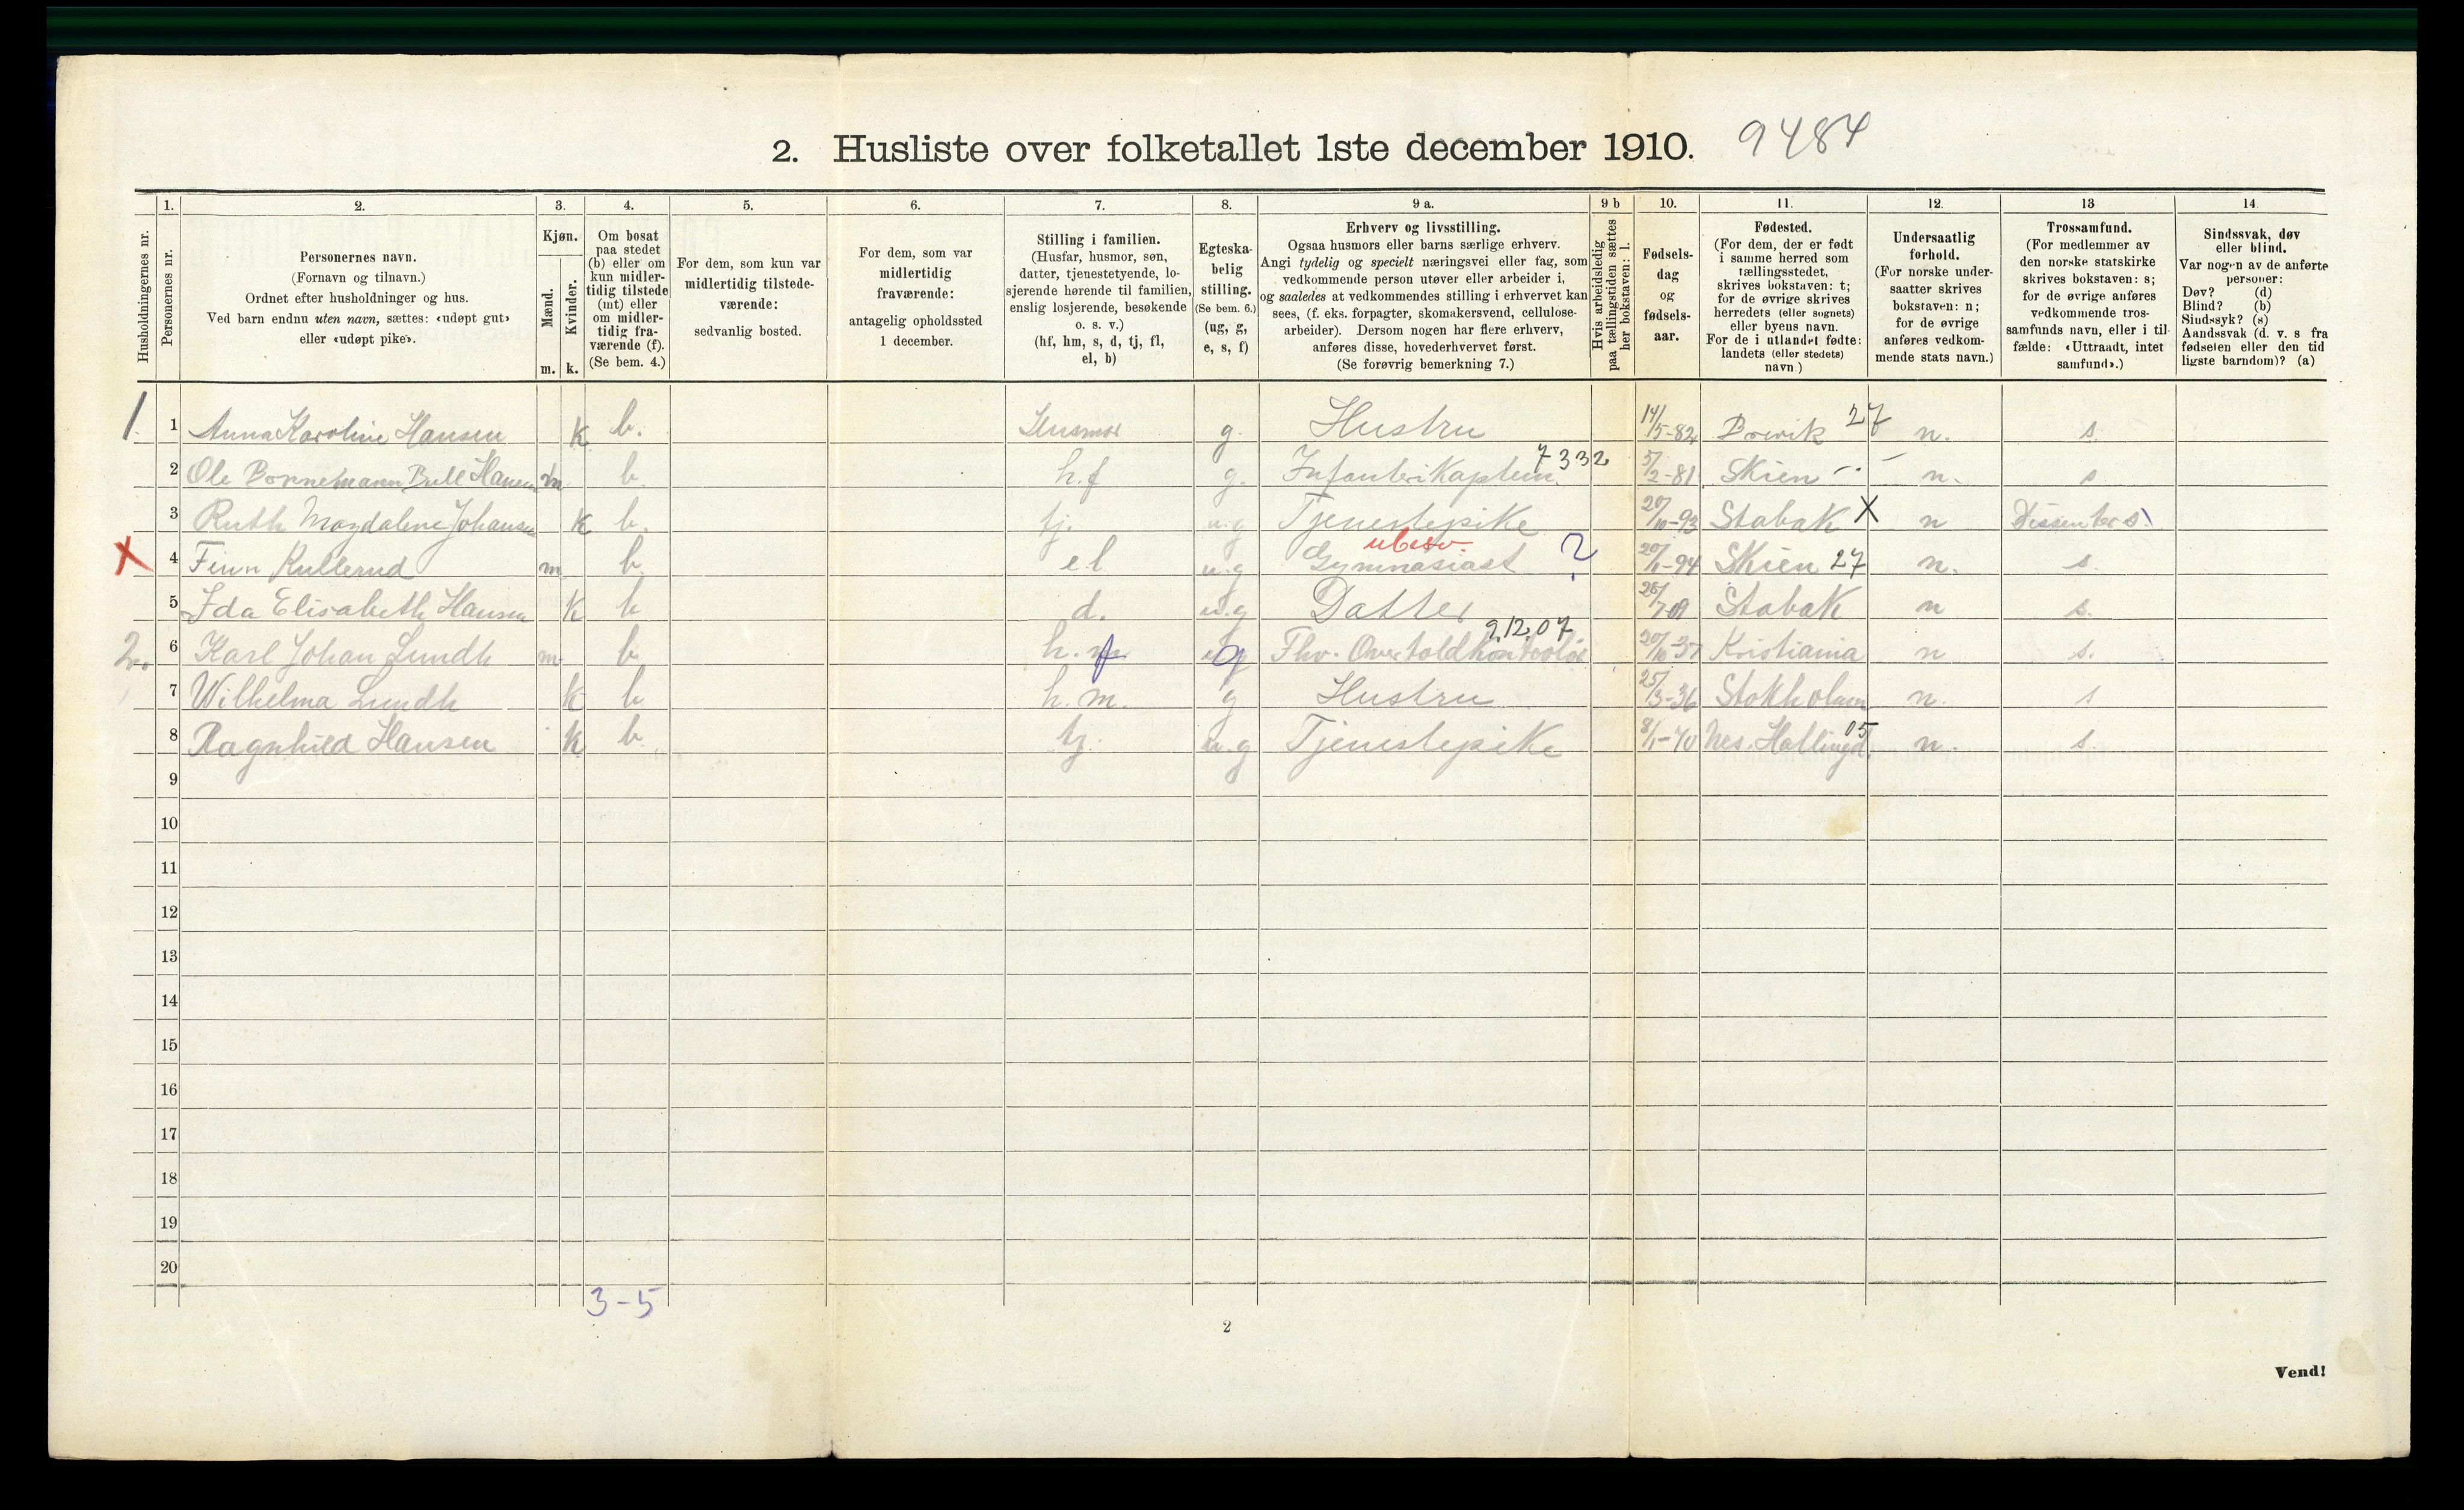 2. Husliste over folketallet 1ste december 1910. 9484
1. 2. 3. 4. 5. 6. 7. 8. 9 a. 9 b 10. 11. 12. 13 14
Husholdningernes nr.
Personernes nr.
Personernes navn.
(Fornavn og tilnavn.)
Ordnet efter husholdninger og hus.
Ved barn endnu uten navn, sættes: «udøpt gut»
eller «udøpt pike».
Kjøn.
Mænd.
Kvinder.
m. k.
Om bosat
paa stedet
(b) eller om
kun midler-
tidig tilstede
(mt) eller
om midler-
tidig fra-
værende (f).
(Se bem. 4.)
For dem, som kun var
midlertidig tilstede-
værende:
sedvanlig bosted.
For dem, som var
midlertidig
fraværende:
antagelig opholdssted
1 december.
Stilling i familien.
(Husfar, husmor, søn,
datter, tjenestetyende, lo-
sjerende hørende til familien,
enslig losjerende, besøkende
o. s. v.)
(hf, hm, s, d, tj, fl,
el, b)
Egteska-
belig
stilling.
(Se bem. 6.)
(ug, g,
e, s, f)
Erhverv og livsstilling.
Ogsaa husmors eller barns særlige erhverv.
Angi tydelig og specielt næringsvei eller fag, som
vedkommende person utøver eller arbeider i,
og saaledes at vedkommendes stilling i erhvervet kan
sees, (f. eks. forpagter, skomakersvend, cellulose-
arbeider). Dersom nogen har flere erhverv,
anføres disse, hovederhvervet først.
(Se forøvrig bemerkning 7.)
Hvis arbeidsledig
paa tællingstiden sættes
her bokstaven: l.
Fødsels-
dag
og
fødsels-
aar.
Fødested.
(For dem, der er født
i samme herred som
tællingsstedet,
skrives bokstaven: t;
for de øvrige skrives
herredets (eller sognets)
eller byens navn.
For de i utlandet fødte:
landets (eller stedets)
navn.)
Undersaatlig
forhold.
(For norske under-
saatter skrives
bokstaven: n;
for de øvrige
anføres vedkom-
mende stats navn.)
Trossamfund.
(For medlemmer av
den norske statskirke
skrives bokstaven: s;
for de øvrige anføres
vedkommende tros-
samfunds navn, eller i til-
fælde: «Uttraadt, intet
samfund».)
Sindssvak, døv
eller blind.
Var nogen av de anførte
personer:
Døv? (d)
Blind? (b)
Sindssyk? (s)
Aandssvak (d. v. s fra
fødselen eller den tid
ligste barndom)? (a)
1. 1 Anna Karoline Hansen k b. Husmor g. Hustru 14/5-82 Brevik 27 n. s.
2 Ole Bornemann Bull Hansen m b. h.f g. Infanterikaptein 7332 5/2-81 Skien -.- n. s
3 Ruth Magdalene Johansen k b. tj. u.g Tjenestepike 20/10-93 Stabak X n Dissenter s.
X 4 Finn Kullerud m b. e.l u.g Gymnasiast ubesv. ? 20/1-94 Skien 27 n. s.
5 Ida Elisabeth Hansen k b d. u.g Datter 26/7-09 Stabak n s.
2. 6 Karl Johan Lundh m b h.f g Fhv. Overtoldkontrolør 9.12.07 20/10-37 Kristiania n s.
7 Wilhelma Lundh k b h.m. g Hustru 25/3-36 Stokholm n. s
8 Ragnhild Hansen k b tj. u.g Tjenestepike 8/1-70 Nes. Hallingd. 05 n. s.
9
10
11
12
13
14
15
16
17
18
19
20
3-5
2
Vend!